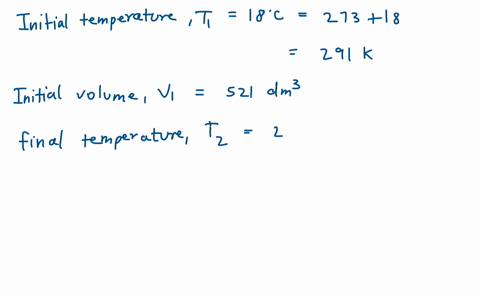 Initial temperature, T₁ = 18°C = 273 + 18
= 291 K
Initial volume, V₁ = 521 dm³
final temperature, T₂ = 2